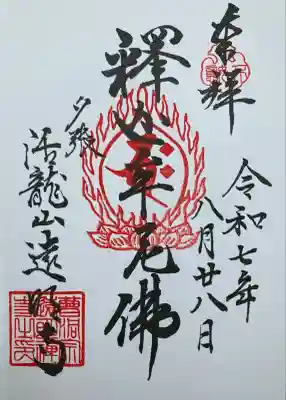 奉拝
令和七年
八月廿八日
釋迦牟尼佛
夕張
活龍山遠 寺